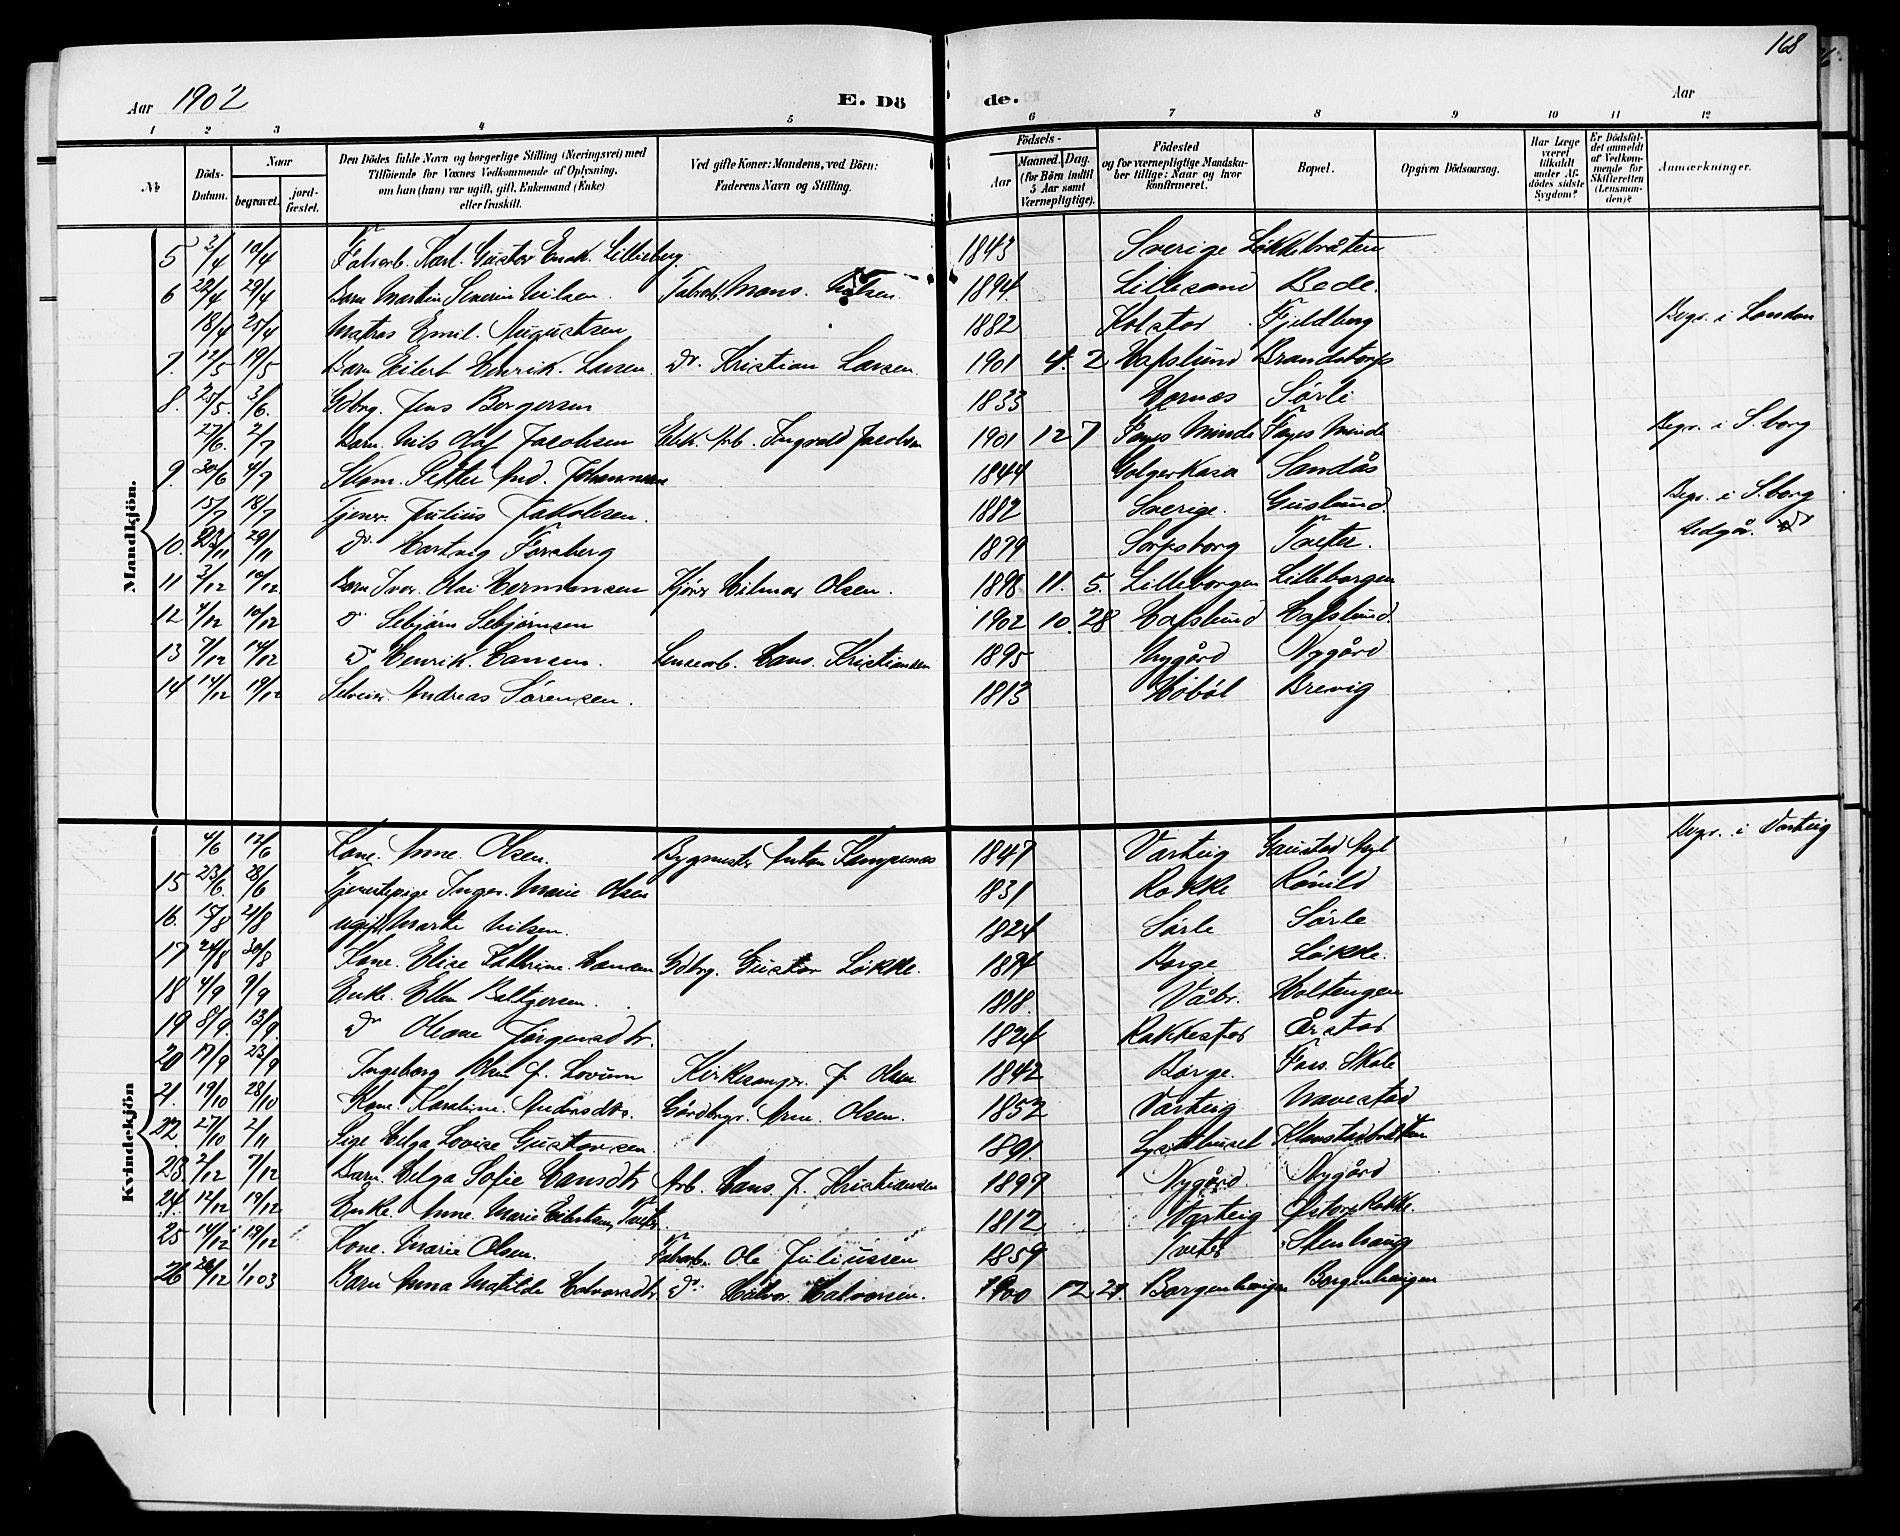 168
Aar 1902 E. Döde. Aar
1 2 3 4 5 6 7 8 9 10 11 12
No Döds-Datum. Naar begravet. jord-fæstet. Den Dödes fulde Navn og borgerlige Stilling (Næringsvei) med Tilföiende for Voxnes Vedkommende af Oplysning, om han (hun) var ugift, gift, Enkemand (Enke) eller fraskilt. Ved gifte Koner: Mandens, ved Börn: Faderens Navn og Stilling. Födsels- Aar Maaned. Dag. (for Börn indtil 5 Aar samt Værnepligtige). Födested og for værnepligtige Mandskaber tillige: Naar og hvor konfirmeret. Bopæl. Opgiven Dödsaarsag. Har Læge været tilkaldt under Afdödes sidste Sygdom? Er Dödsfaldet anmeldt af Vedkommende for Skifteretten (Lensmanden)? Anmærkninger.
Mandkjön.
5 2/4 10/4 Fabrarb. Karl Gustav Enok. Lillieberg. 1843 Sverige Løkkebråten
6 22/4 29/4 Barn Martin Severin Nilsen. Fabrarb. Mons. Nilsen. 1894 Lillesand Bede.
18/4 25/4 Matros Emil. Augustsen 1882 Kolstad Fjeldberg Begr. i London
7. 12/5 19/5 Barn Eilert Henrik. Larsen. Do. Kristian Larsen. 1901 4. 2 Hafslund Brandstorp
8. 25/5. 3/6. Gdbrg. Jens Borgersen 1833 Hornes Sørli
27/6. 2/7 Barn. Nils Olaf Jacobsen Elek. Arb. Ingvald Jacobsen 1901 12 7 Fayes Minde Fayes Minde Begr. i S.borg
9. 30/6 4/7 Skom. Petter And. Johannesen 1844 Sandås
15/7 18/7 Tjener. Julius Jakobsen. 1882 Sverige. Guslund. Begr. i S.borg
10. 23/11 29/11 Do. Hartvig Forsberg 1879 Sarpsborg Tveter. Udgår.
11 3/12 10/12 Barn Ivar. Olai Hermansen Kjører Hilmar Olsen. 1898 11. 5. Lilleborgen Lilleborgen
12 4/12 10/12 Do Sebjørn Sebjørnsen 1902 10. 28 Hafslund Hafslund.
13 7/12 14/12 Do Henrik. Hansen. Lensearb. Hans. Kristiansen 1895 Nygård Nygård
14 14/12 19/12 Selveier Andreas Sørensen. 1813 Hobøl Brevig
Kvindekjön
4/6 12/6 Kone. Anne. Olsen. Bygmester Anton Kampenes 1847 Varteig Gaustad Begr. i Varteig
15 23/6. 28/6 Tjenestepige Inger. Marie Olsen 1831 Rokke Rømild
16. 15/8 21/8 ugift Marte Nilsen. 1824 Sørle Sørle
17 24/8 30/8 Kone. Elise Kathrine. Hansen Gdbrg. Gustav Løkke. 1874 Borge Løkke.
18 4/9 9/9 Enke. Ellen Baltzersen. 1818. Våbr. Holtengen
19 8/9. 13/9. Do Oleane Jørgensdtr. 1824 Rakkestad Årstad
20 17/9 23/9 Ingeborg Olsen f. Lovum Kirkesanger. J. Olsen. 1842 Borge. Foss. Skole
21. 19/10 28/10 Kone. Karoline. Andersdtr. Gårdbrgr. Arne. Olsen. 1852 Varteig Navestad
22. 27/10 2/11 Pige Helga Lovise Gustavsen. 1891. Lysthuset Klavestadbråten
23. 2/12 7/12 Barn. Helga Sofie Hansdtr Arb. Hans. J. Kristiansen 1897 Nygård. Nygård
24. 12/12 19/12 Enke. Anne. Marie Eilertsen, Tveter. 1812 Varteig Østre Rokke.
25 14/12 19/12 Kone. Marie Olsen. Fabrarb. Ole Juliussen 1859 Tveter Stenhaug
26 26/12 1/1 03 Barn Anna Matilde Halvorsdtr Do. Halvor. Halvorsen. 1900 12. 21. Borgenhaugen Borgenhaugen